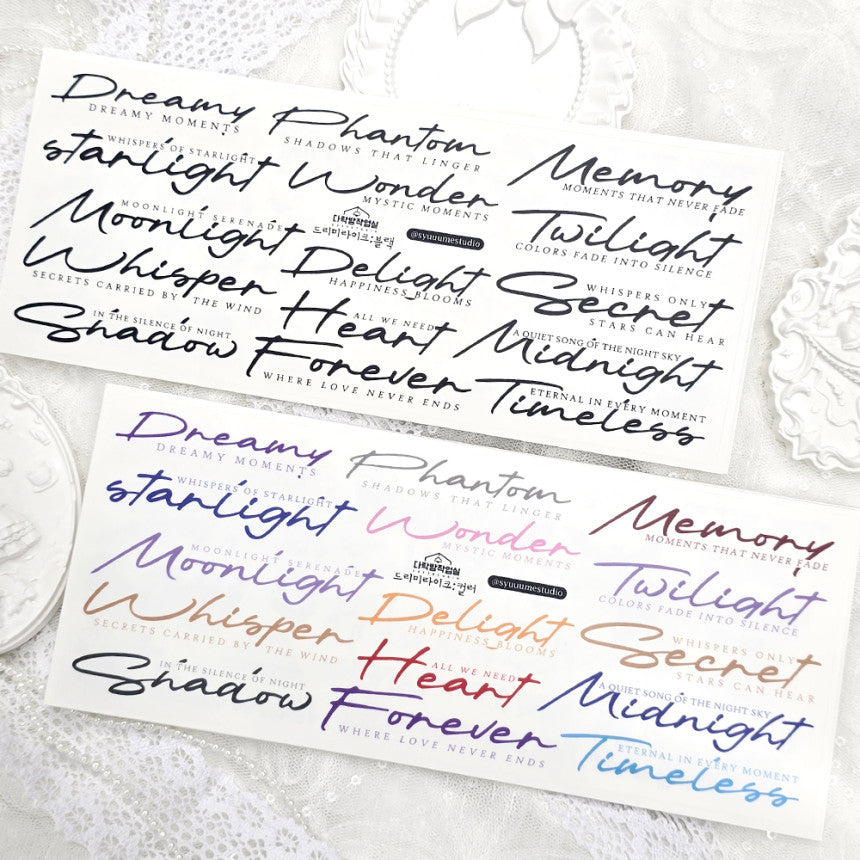 Dreamy
DREAMY MOMENTS
Phantom
SHADOWS THAT LINGER
Memory
MOMENTS THAT NEVER FADE
WHISPERS OF STARLIGHT
starlight
Wonder
MYSTIC MOMENTS
Twilight
COLORS FADE INTO SILENCE
MOONLIGHT SERENADE
Moonlight
다락방작업실
드리미라이크;블랙
@syuuumestudio
Delight
HAPPINESS BLOOMS
WHISPERS ONLY
Secret
STARS CAN HEAR
Whisper
SECRETS CARRIED BY THE WIND
ALL WE NEED
Heart
A QUIET SONG OF THE NIGHT SKY
Midnight
IN THE SILENCE OF NIGHT
Shadow
Forever
WHERE LOVE NEVER ENDS
ETERNAL IN EVERY MOMENT
Timeless
Dreamy
DREAMY MOMENTS
Phantom
SHADOWS THAT LINGER
Memory
MOMENTS THAT NEVER FADE
WHISPERS OF STARLIGHT
starlight
Wonder
MYSTIC MOMENTS
Twilight
COLORS FADE INTO SILENCE
MOONLIGHT SERENADE
Moonlight
다락방작업실
드리미라이크;컬러
@syuuumestudio
Delight
HAPPINESS BLOOMS
WHISPERS ONLY
Secret
STARS CAN HEAR
Whisper
SECRETS CARRIED BY THE WIND
ALL WE NEED
Heart
A QUIET SONG OF THE NIGHT SKY
Midnight
IN THE SILENCE OF NIGHT
Shadow
Forever
WHERE LOVE NEVER ENDS
ETERNAL IN EVERY MOMENT
Timeless